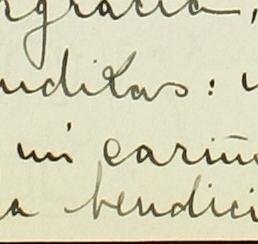 rgracia,
nditas: y
mi cariñ
a bendici